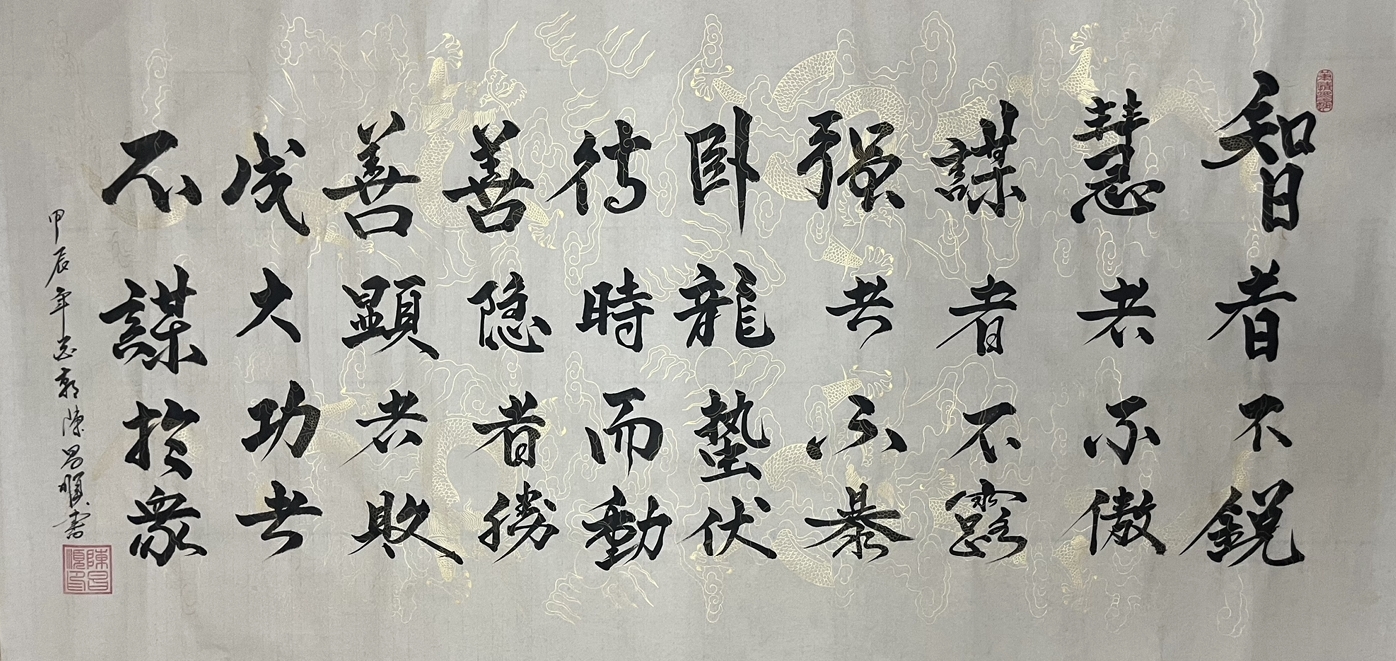 智者不銳
慧者不傲
謀者不露
强者不暴
卧龍蟄伏
待時而動
善隐者勝
善顯者敗
成大功者
不謀於衆
甲辰年 陳昌順書
陳昌順印